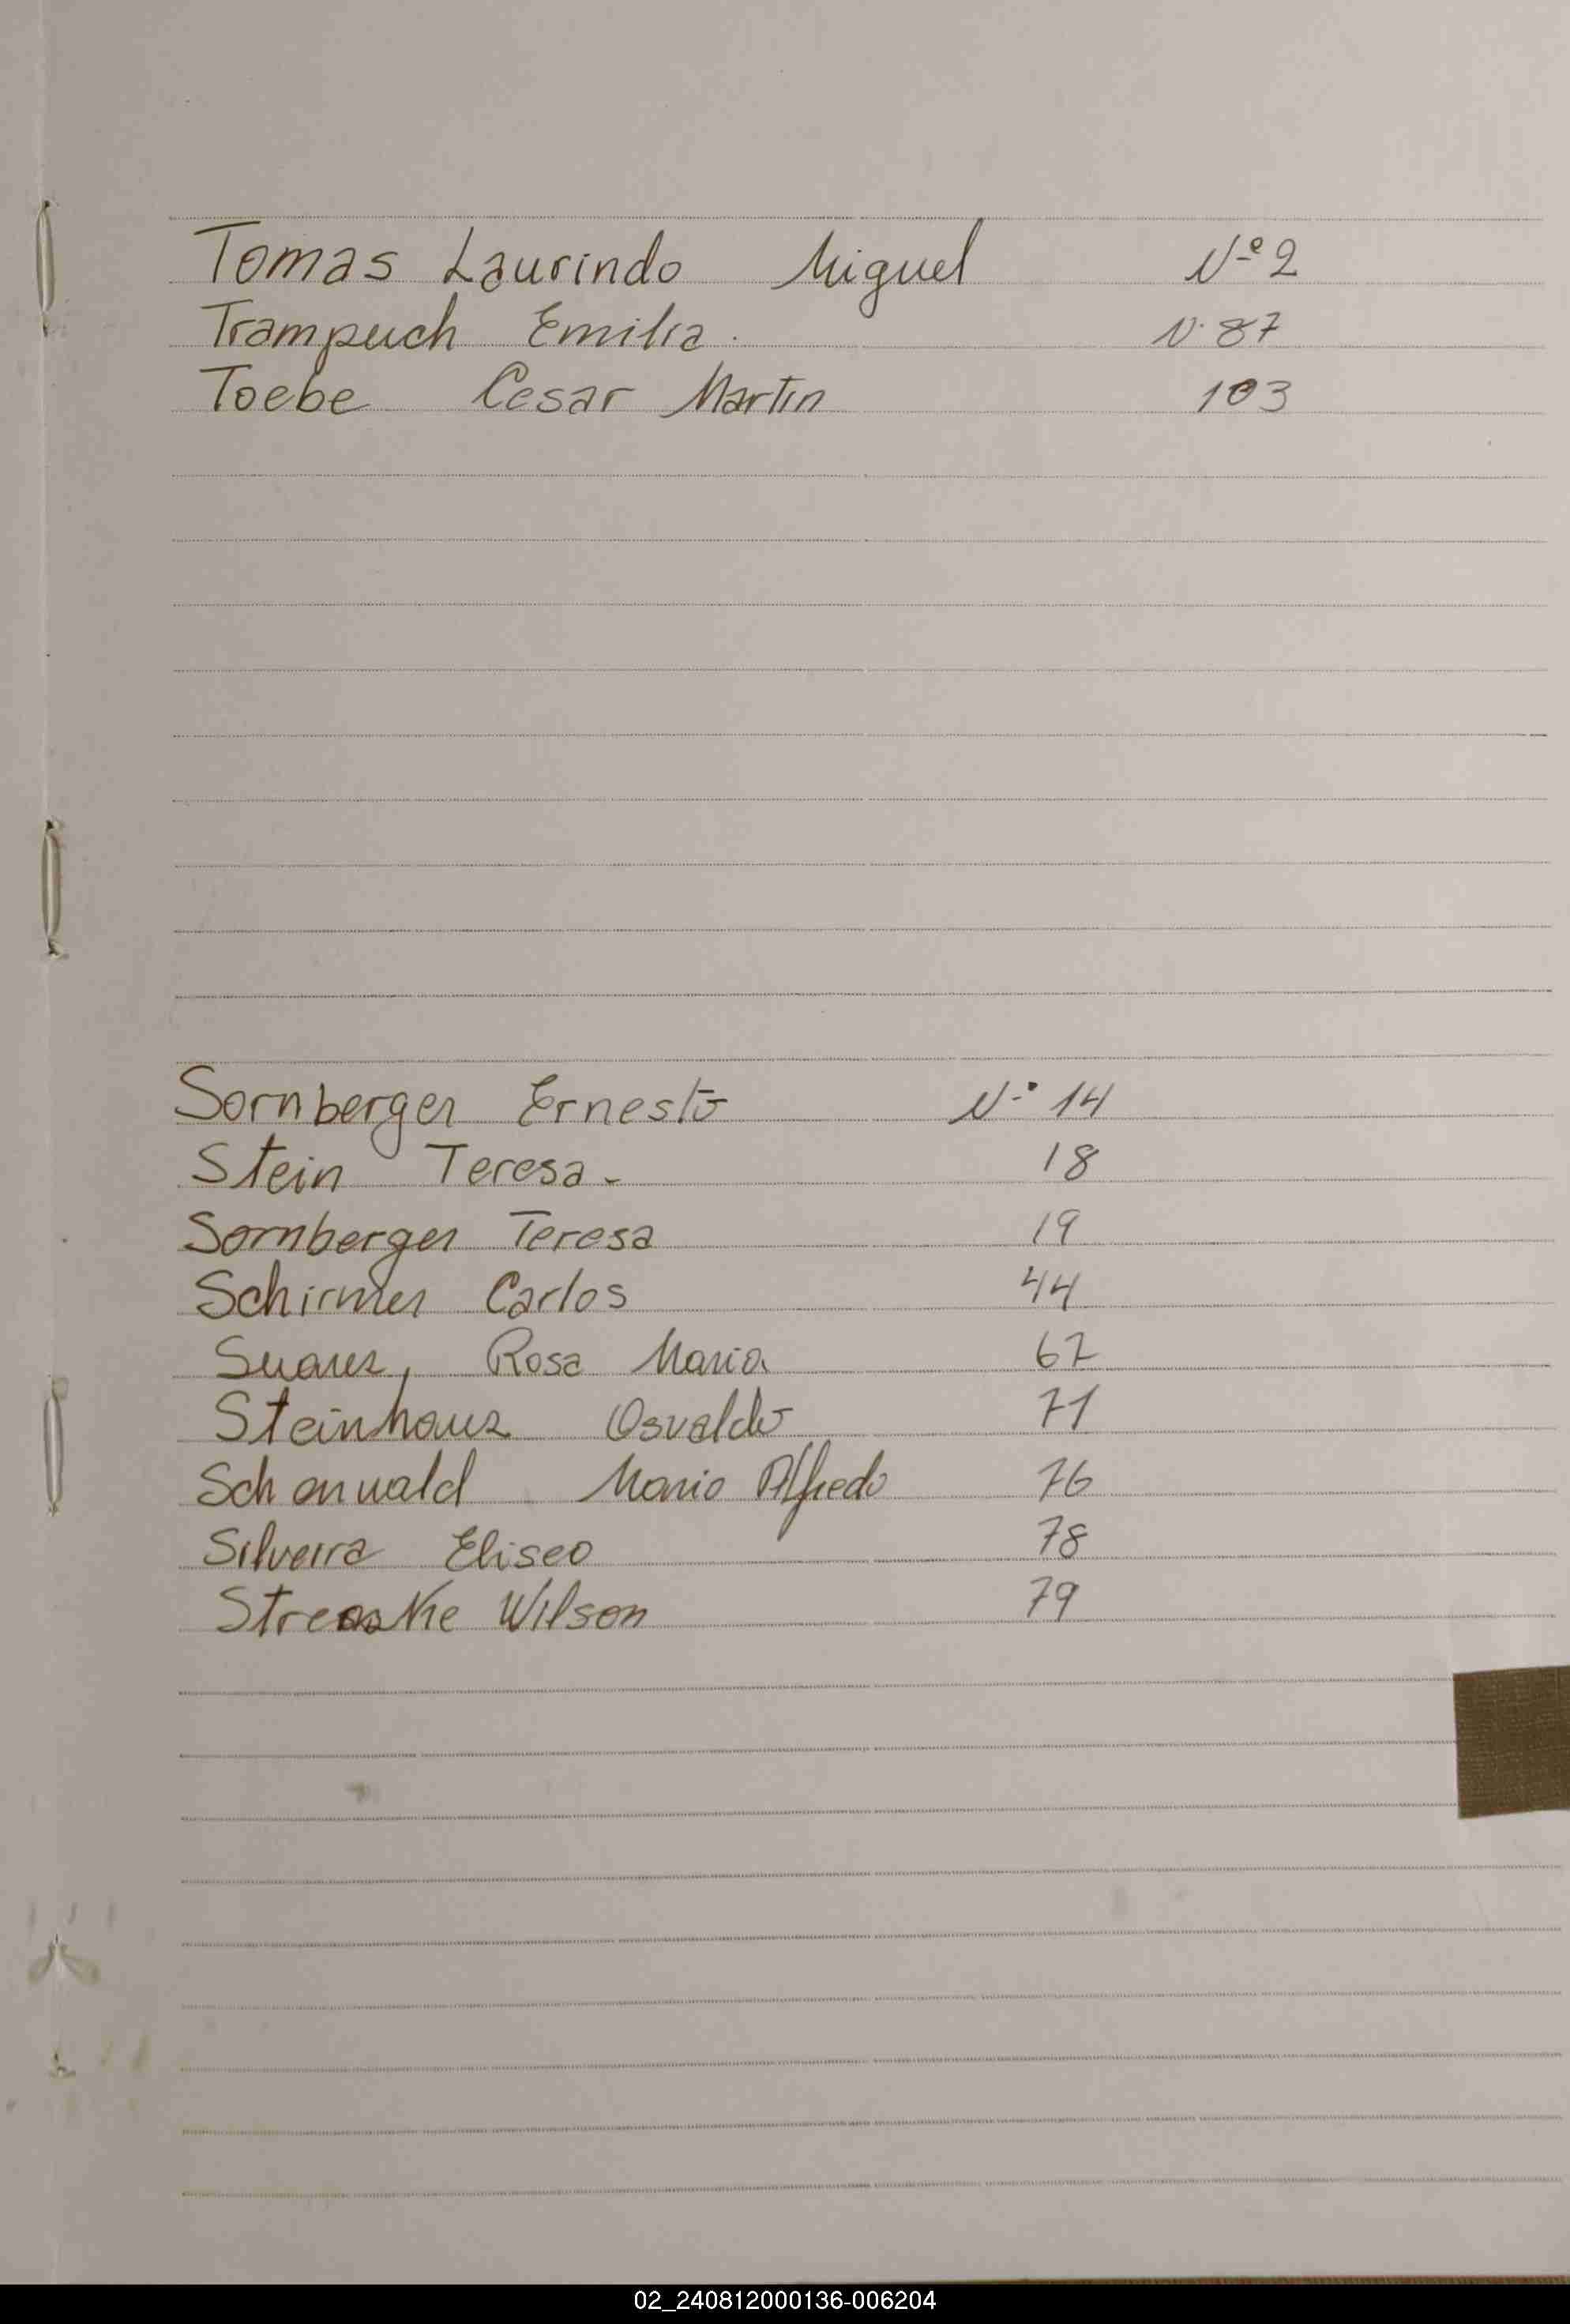 Tomas Laurindo Miguel Nº 2
Trampuch Emilia. N. 87
Toebe Cesar Martin 103
Sornberger Ernesto Nº 14
Stein Teresa - 18
Sornberger Teresa 19
Schirmer Carlos 44
Suarez, Rosa Maria 67
Steinhaus Osvaldo 71
Schonwald Mario Alfredo 76
Silveira Eliseo 78
Wilson 79
02_240812000136-006204